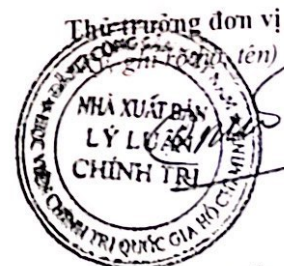 Thủ trưởng đơn vị
tên)
NHÀ XUẤT BẢN
LÝ LUẬN
CHÍNH TRỊ
HỌC VIỆN CHÍNH TRỊ QUỐC GIA HỒ CHÍ MINH